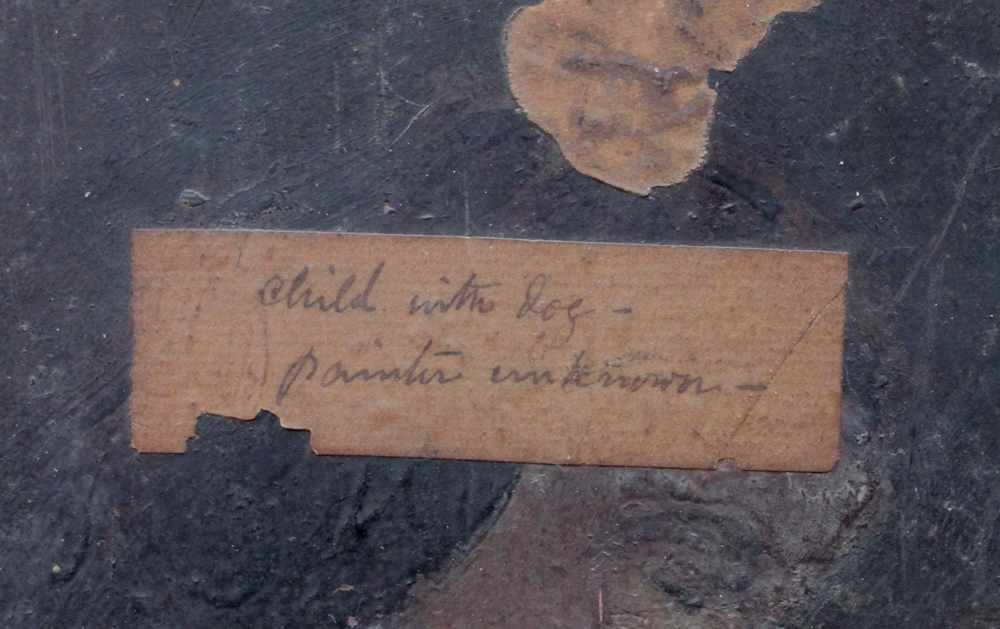 child with dog –
painter unknown –